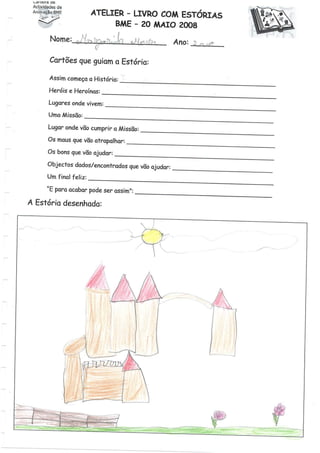 Carteira de
Actividades de
Animação BME
ATELIER - LIVRO COM ESTÓRIAS
BME - 20 MAIO 2008
Nome: Margarida Ano:
Cartões que guiam a Estória:
Assim começa a História:
Heróis e Heroínas:
Lugares onde vivem:
Uma Missão:
Lugar onde vão cumprir a Missão:
Os maus que vão atrapalhar:
Os bons que vão ajudar:
Objectos dados/encontrados que vão ajudar:
Um final feliz:
"E para acabar pode ser assim":
A Estória desenhada: